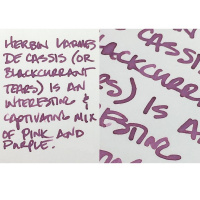 HERBIN LARMES
DE CASSIS (OR
BLACKCURRANT
TEARS) IS AN
INTERESTING &
CAPTIVATING MIX
OF PINK AND
PURPLE.
CASSI
ACKCURR
S) IS A
ESTING